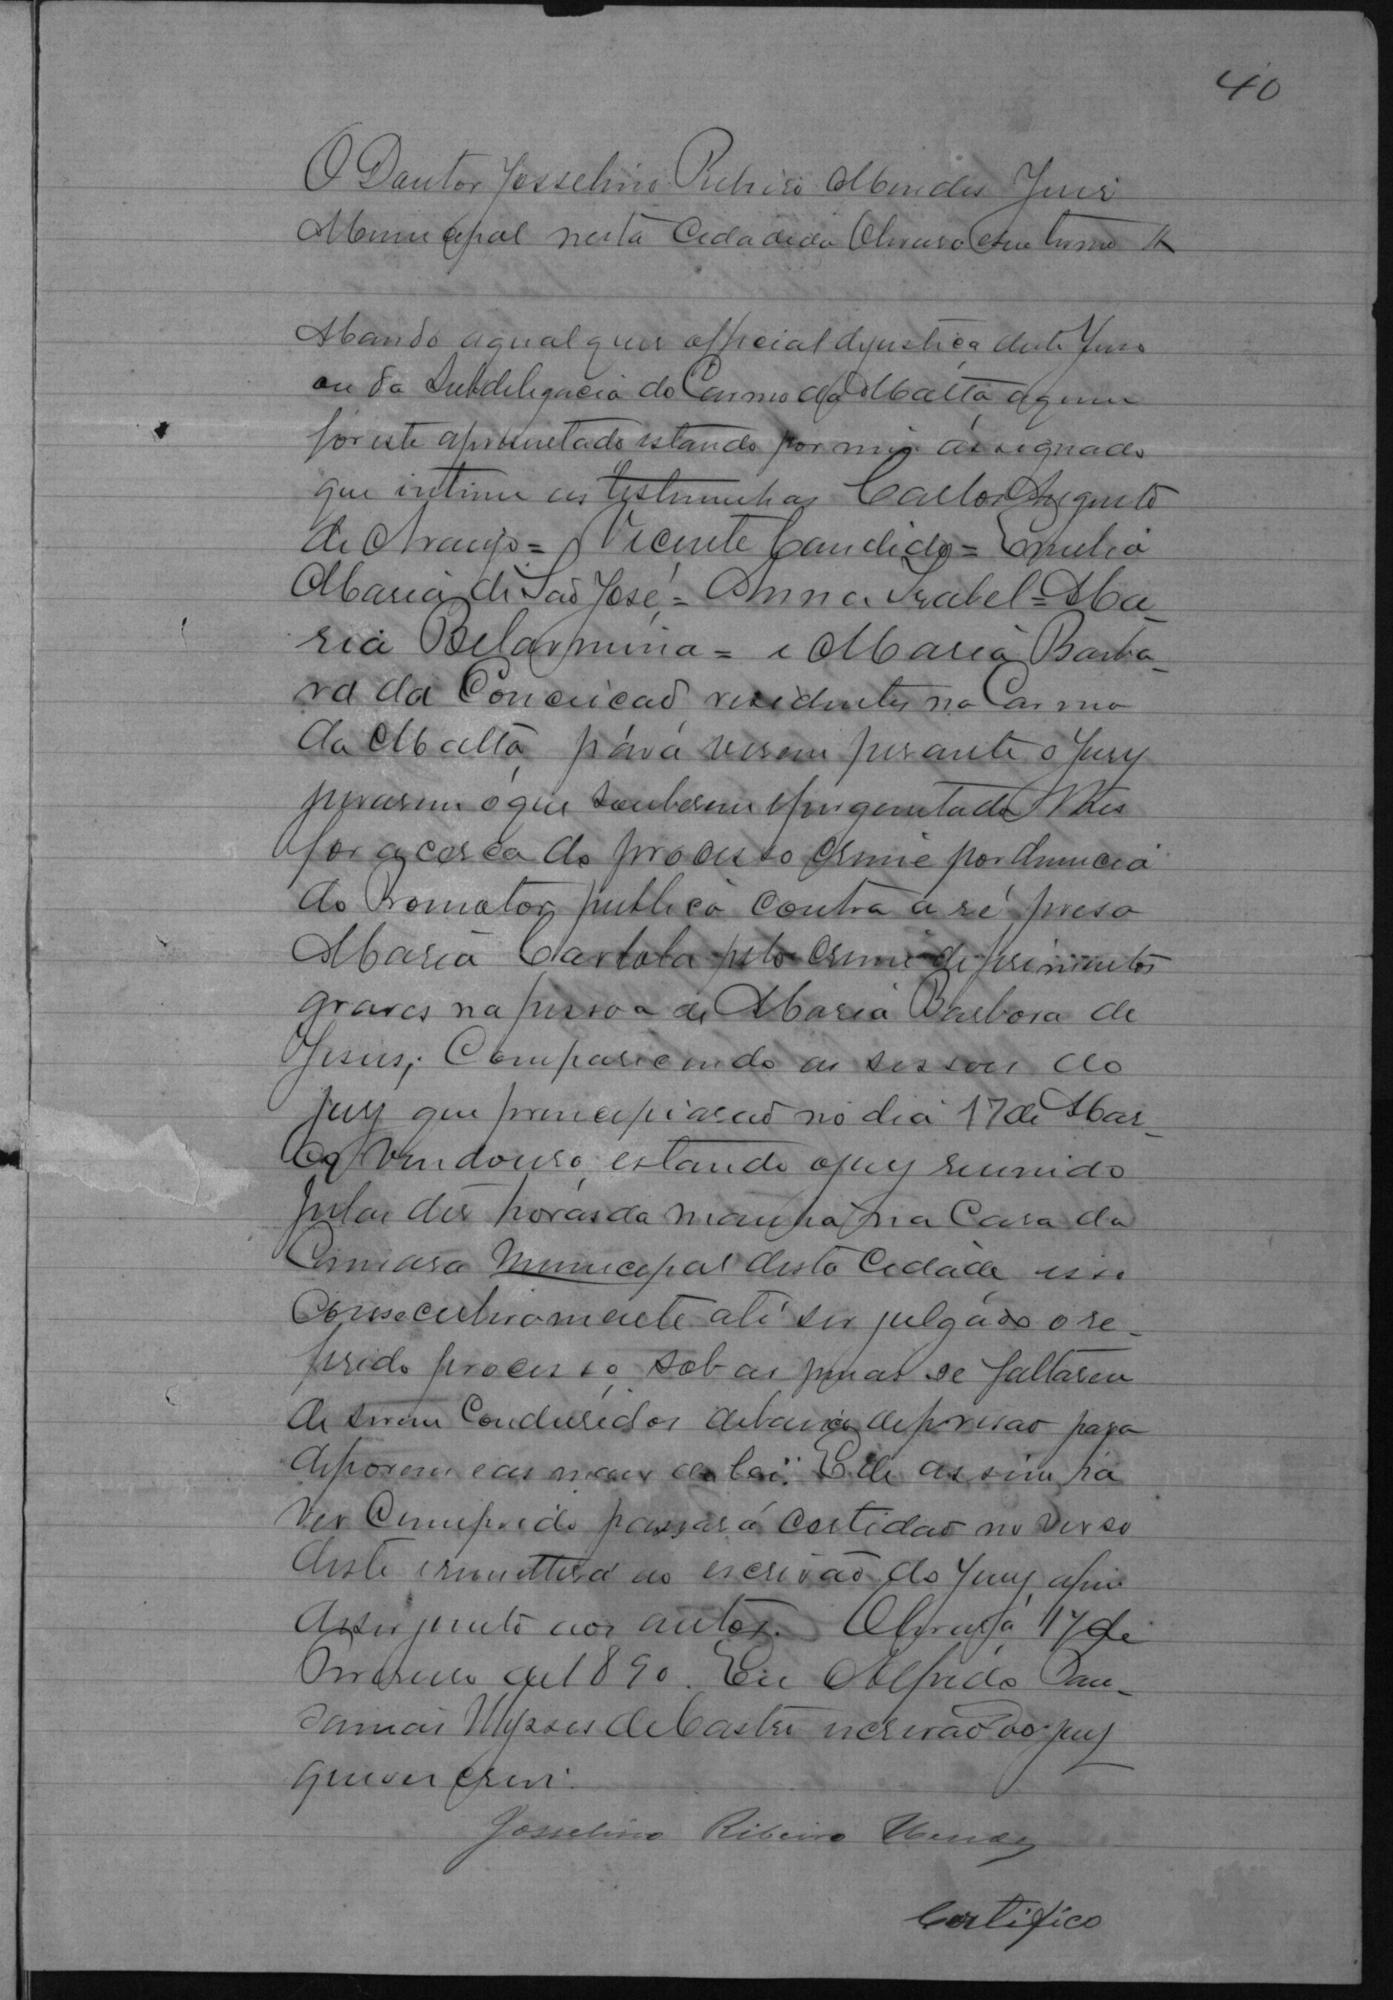 40
O Doutor Josselino Ribeiro Mendes Juis
Municipal nesta Cidade da Oliveira e seu termo &
Mando a qual quer official de justiça deste Juiso
ou da Subdelegacia do Carmo da Matta a quem
for este apresentado estando por mim assignado
que intime as testimunhas Carlos Augusto
de Araujo = Vicente Candido = Emilia
Maria de São José = Anna Isabel = Ma-
ria Belarmina = e Maria Barba-
ra da Conceicaõ residentes no Carmo
da Matta, para virem perante o Jury
jurarem o que souberem e perguntado lhes
for a cerca do processo crime por denuncia
do Promotor publico contra a ré presa
Maria Carlota pelo crime de ferimentos
graves na pessoa de Maria Barbosa de
Jesus; Comparecendo as sessoes do
jury que principiaraõ no dia 17 de Mar-
ço vendouro, estando o jury reunido
pelas des horas da manha na Casa da
Camara Municipal desta Cidade e isso
Consecutivamente até ser julgado o re-
ferido processo, sob as penas se faltarem
de serem Condusidos debaixo de prisao para
deporem e as mais da lei. E de assim ha
ver Cumprido passará certidaõ no verso
deste e remetterá ao escrivão do Jury afim
de ser junto aos autos. Oliveira 17 de
Fevereiro de 1890. Eu Alfredo Pau-
sanias Ulysses de Castro escrivaõ do jury
que o escrevi.
Josselino Ribeiro Mendes
Certifico